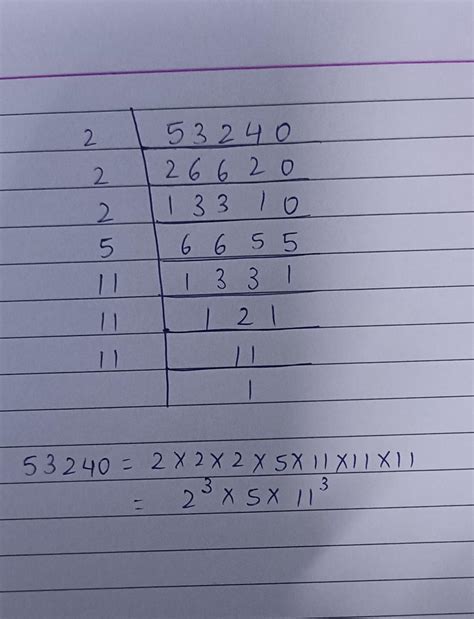 2 53240
2 26620
2 13310
5 6655
11 1331
11 121
11 11
1
53240 = 2 × 2 × 2 × 5 × 11 × 11 × 11
= 2³ × 5 × 11³